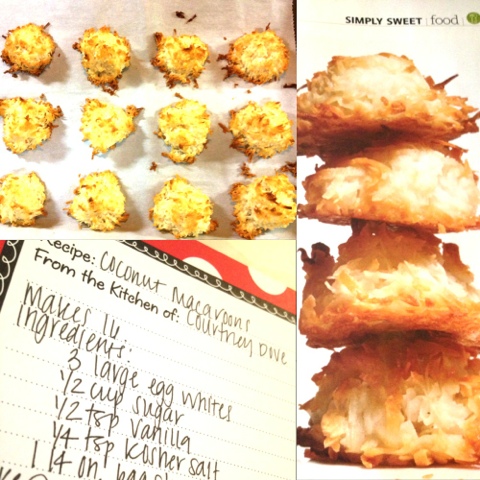 SIMPLY SWEET | food |
Recipe: Coconut Macaroons
From the Kitchen of: Courtney Dove
Makes 14:
Ingredients:
3 large egg whites
1/2 cup sugar
1/2 tsp vanilla
1/4 tsp kosher salt
1 14 on. bag